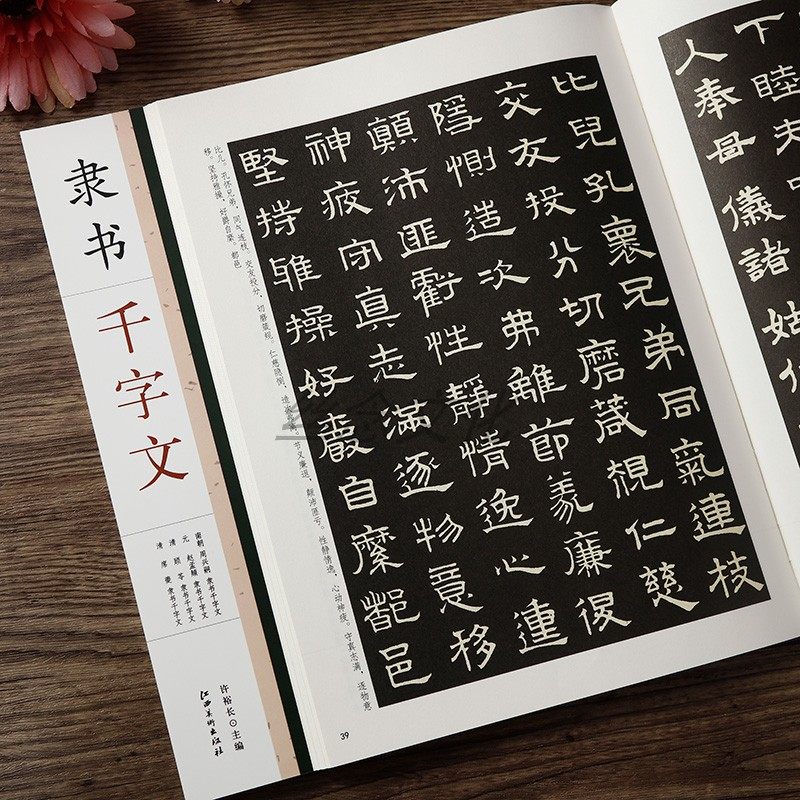 隶书
千字文
南朝 周兴嗣 隶书千字文
元 赵孟頫 隶书千字文
清 顾苓 隶书千字文
清 席夔 隶书千字文
许裕长⊙主编
江西美术出版社
下睦夫
人奉母儀諸姑伯
比兒孔褱兄弟同氣連枝
交友投分切磨葴規仁慈
隱惻造次弗離節義廉退
顛沛匪虧性靜情逸心動
神疲守真志滿逐物意移
堅持雅操好爵自縻都邑
比儿。孔怀兄弟，同气连枝。交友投分，切磨箴规。仁慈隐恻，造次弗离。节义廉退，颠沛匪亏。性静情逸，心动神疲。守真志满，逐物意
移。坚持雅操，好爵自縻。都邑
39